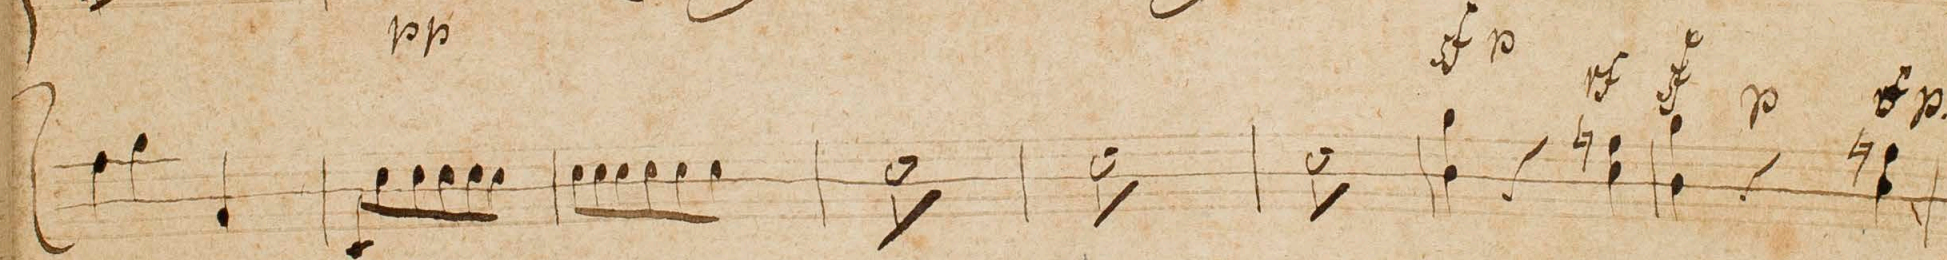 pp
sf p
rf sf p sf p.